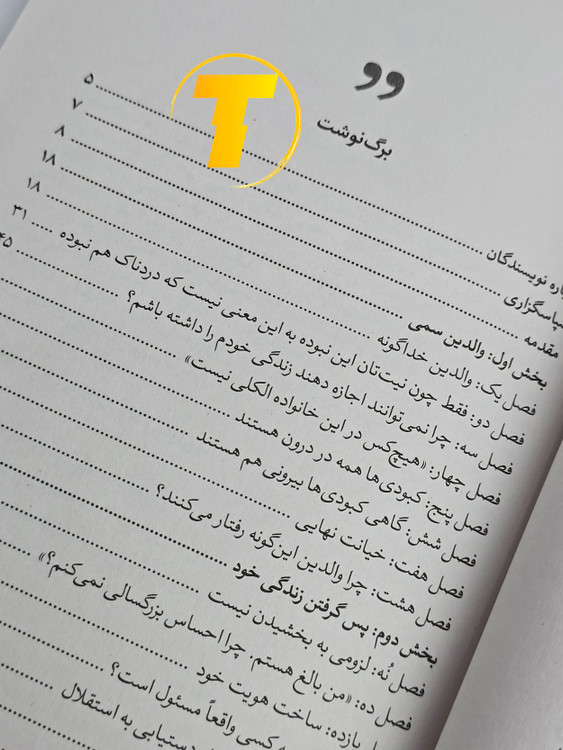 برگ‌نوشت
نویسندگان ۵
سپاسگزاری ۷
مقدمه ۸
بخش اول: والدین سمی ۱۸
فصل یک: والدین خداگونه ۱۸
فصل دو: فقط چون نیت‌تان این نبوده به این معنی نیست که دردناک هم نبوده ۳۱
فصل سه: چرا نمی‌توانند اجازه دهند زندگی خودم را داشته باشم؟
فصل چهار: «هیچ‌کس در این خانواده الکلی نیست»
فصل پنج: کبودی‌ها همه در درون هستند
فصل شش: گاهی کبودی‌ها بیرونی هم هستند
فصل هفت: خیانت نهایی
فصل هشت: چرا والدین این‌گونه رفتار می‌کنند؟
بخش دوم: پس گرفتن زندگی خود
فصل نُه: لزومی به بخشیدن نیست
فصل ده: «من بالغ هستم. چرا احساس بزرگسالی نمی‌کنم؟»
یازده: ساخت هویت خود
کسی واقعاً مسئول است؟
دستیابی به استقلال